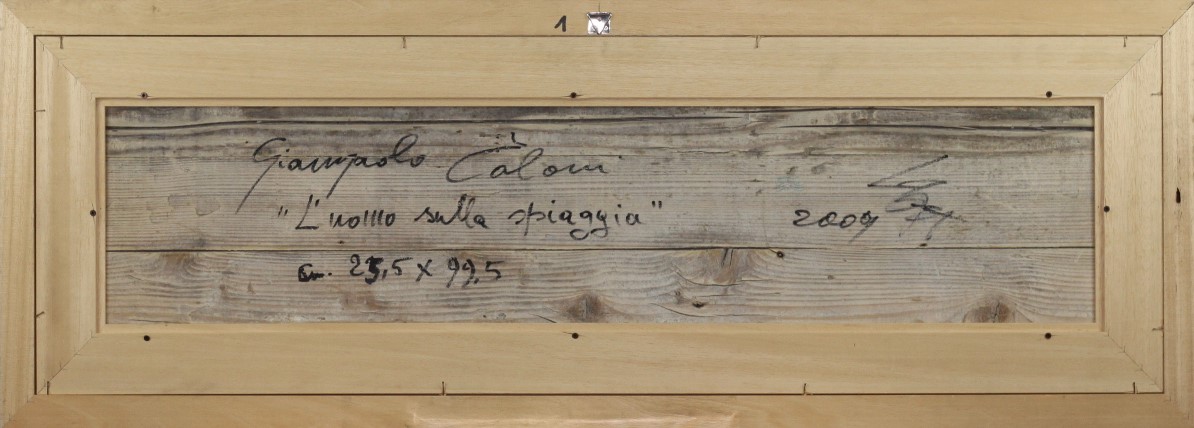 1
Giampaolo Càloni
"L'uomo sulla spiaggia" 2009
cm. 25,5 x 99,5